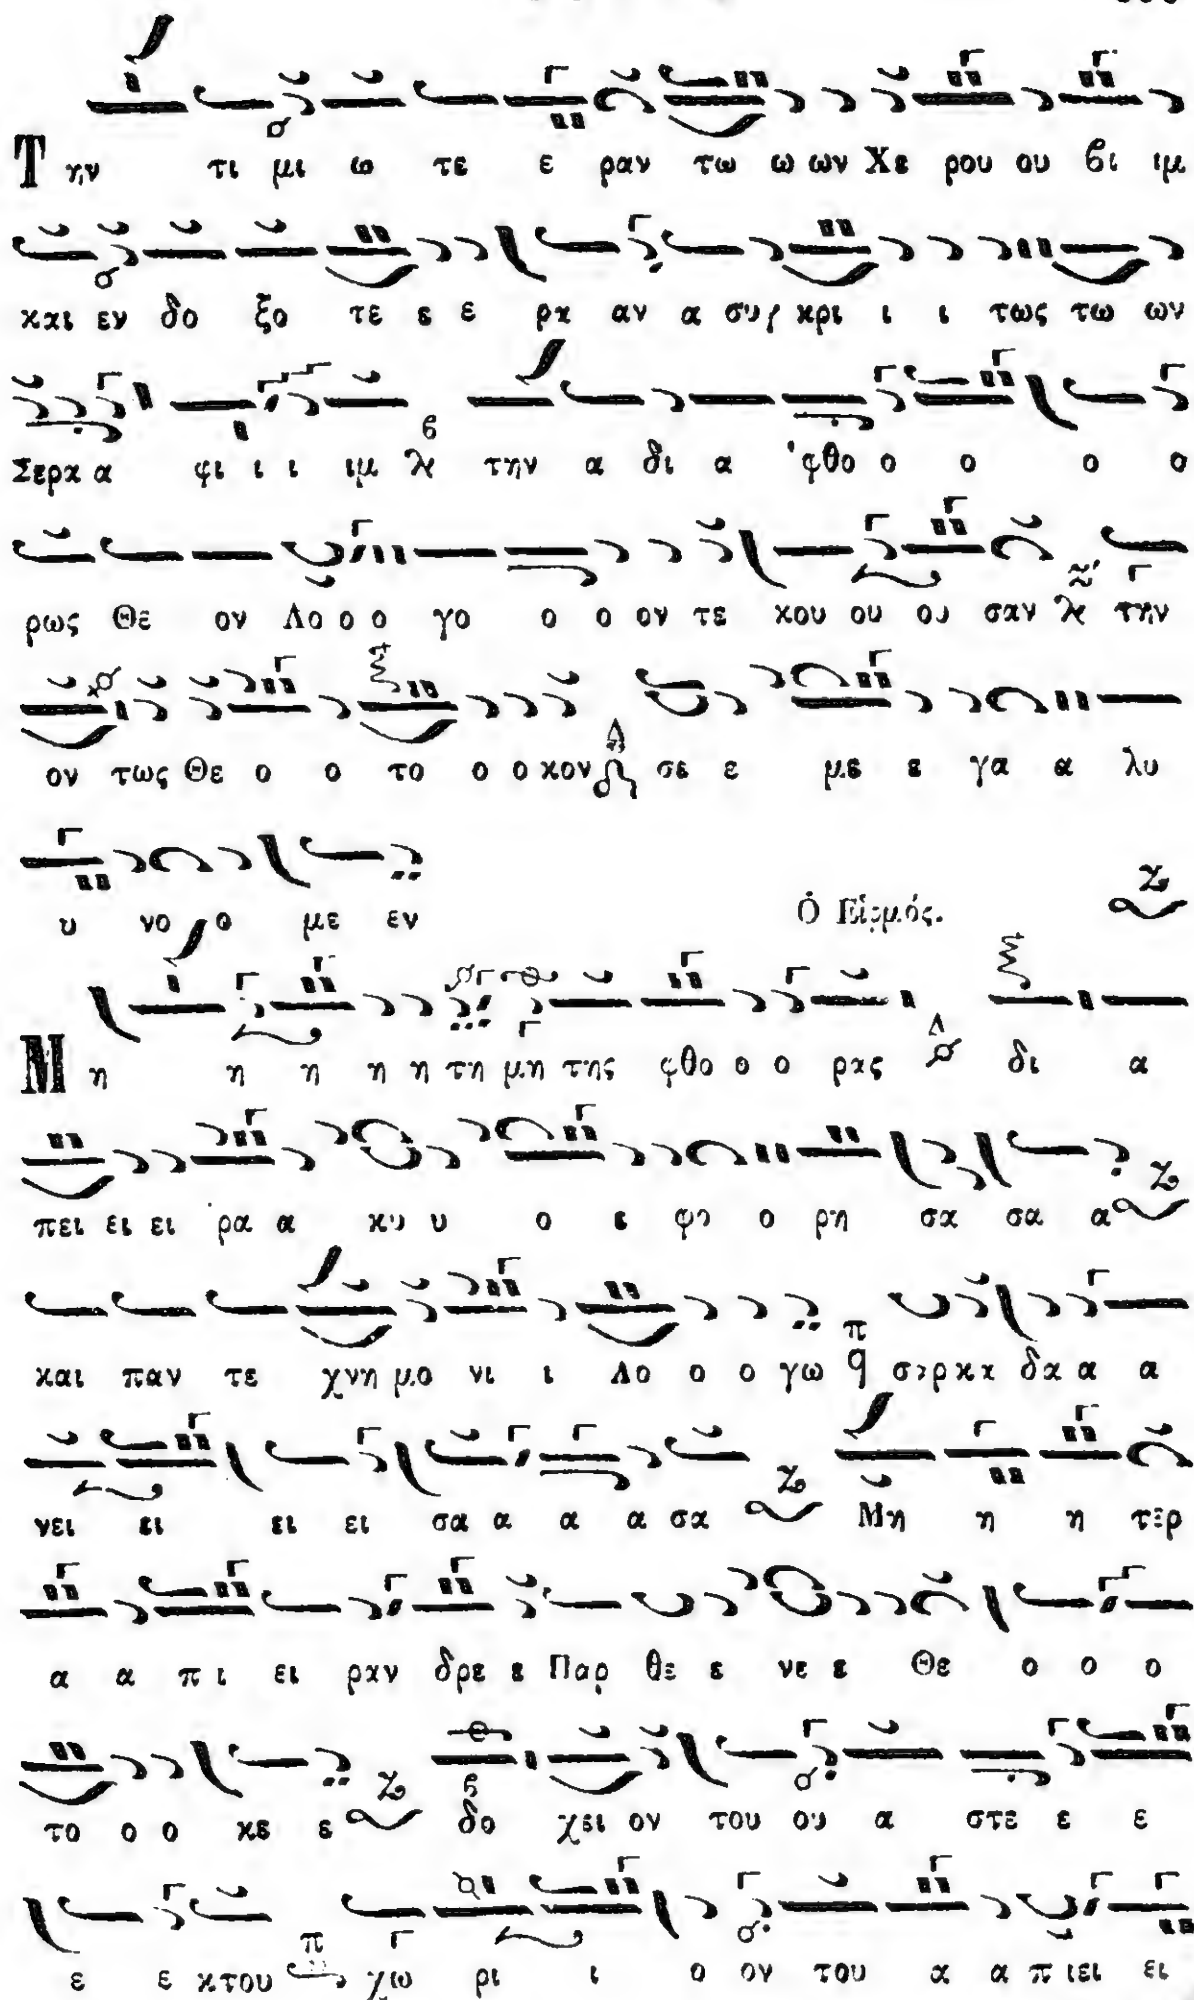 Την τι μι ω τε ε ραν τω ω ων Χε ρου ου βι ιμ
και εν δο ξο τε ε ε ρα αν α συγ κρι ι ι τως τω ων
Σερα α φι ι ι ιμ την α δι α φθο ο ο ο ο
ρως Θε ον Λο ο ο γο ο ο ον τε κου ου ου σαν την
ον τως Θε ο ο το ο ο κον σε ε με ε γα α λυ
υ νο ο με εν
Ὁ Εἱρμός.
Μη η η η η τη μη της φθο ο ο ρας δι α
πει ει ει ρα α κυ υ ο ε φο ο ρη σα σα α
και παν τε χνη μο νι ι Λο ο ο γω σαρκα δα α α
νει ει ει ει σα α α α σα Μη η η τερ
α α π ι ει ραν δρε ε Παρ θε ε νε ε Θε ο ο ο
το ο ο κε ε δο χει ον του ου α στε ε ε
ε ε κτου χω ρι ι ο ον του α α π ιει ει